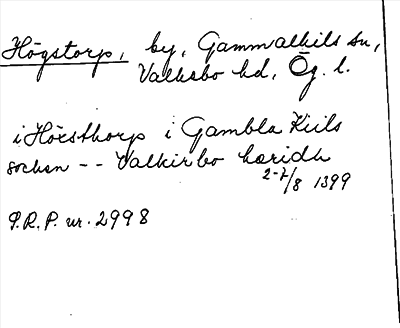 Högstorp, by, Gammalkils sn,
Valkebo hd, Ög. l.
i Hösthorp i Gambla Kiils
sochen -- Valkirbo hæridh
2-7/8 1399
P.R.P. nr. 2998